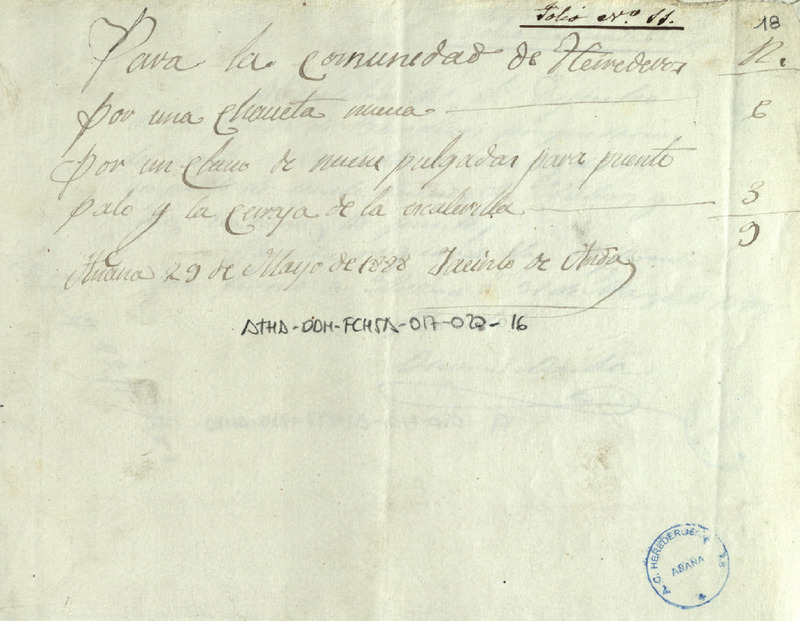 Folio Nº 11.
18
Para la comunidad de Herederos R.
por una chaueta nueua 6
por un clauo de nueue pulgadas para puente
palo y la ceraja de la escalerilla 3
9
Añana 29 de Mayo de 1888 Jacinto de Anda
ATHA-DAH-FCHSA-017-022-16
A.C. HEREDEROS
AÑANA